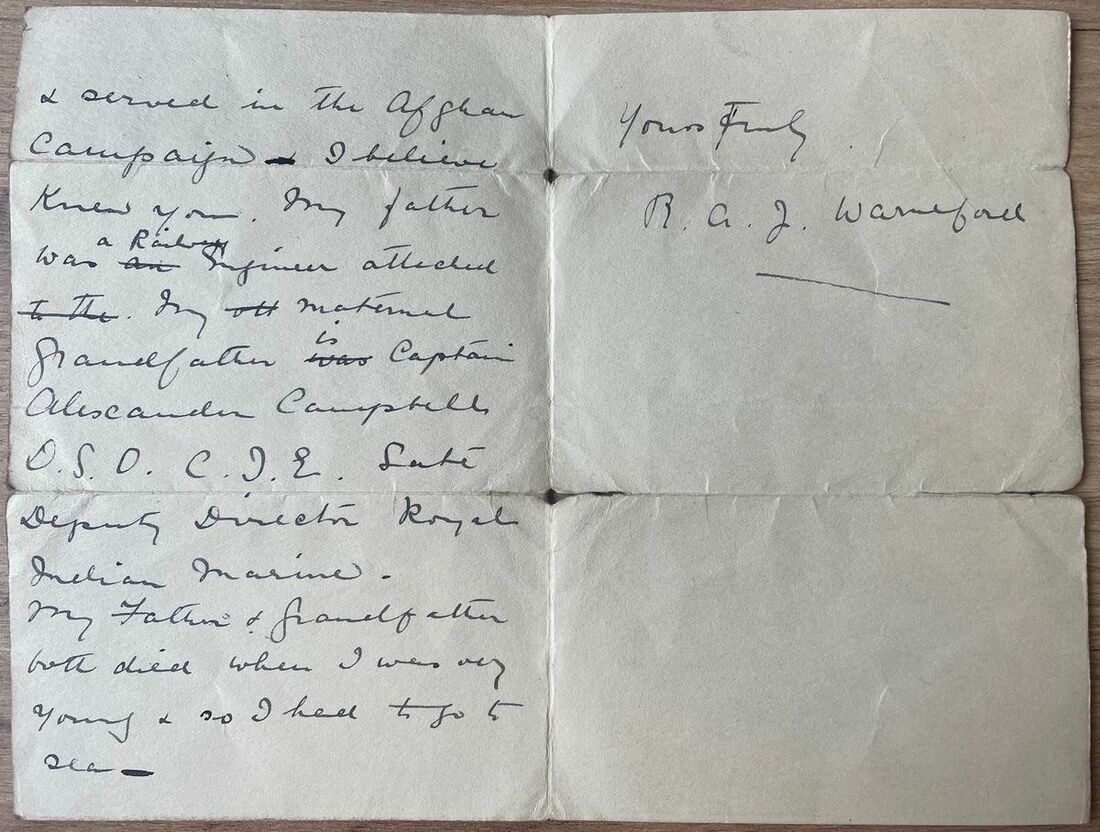 & served in the Afghan
Campaign - I believe
Knew you. My father
a Railway
was an Engineer attached
to the. My old maternal
is
Grandfather was Captain
Alexander Campbell
D.S.O. C.I.E. Late
Deputy Director Royal
Indian Marine.
My Father & Grandfather
both died when I was very
young & so I had to go to
sea -
Yours Truly.
R. A. J. Warneford